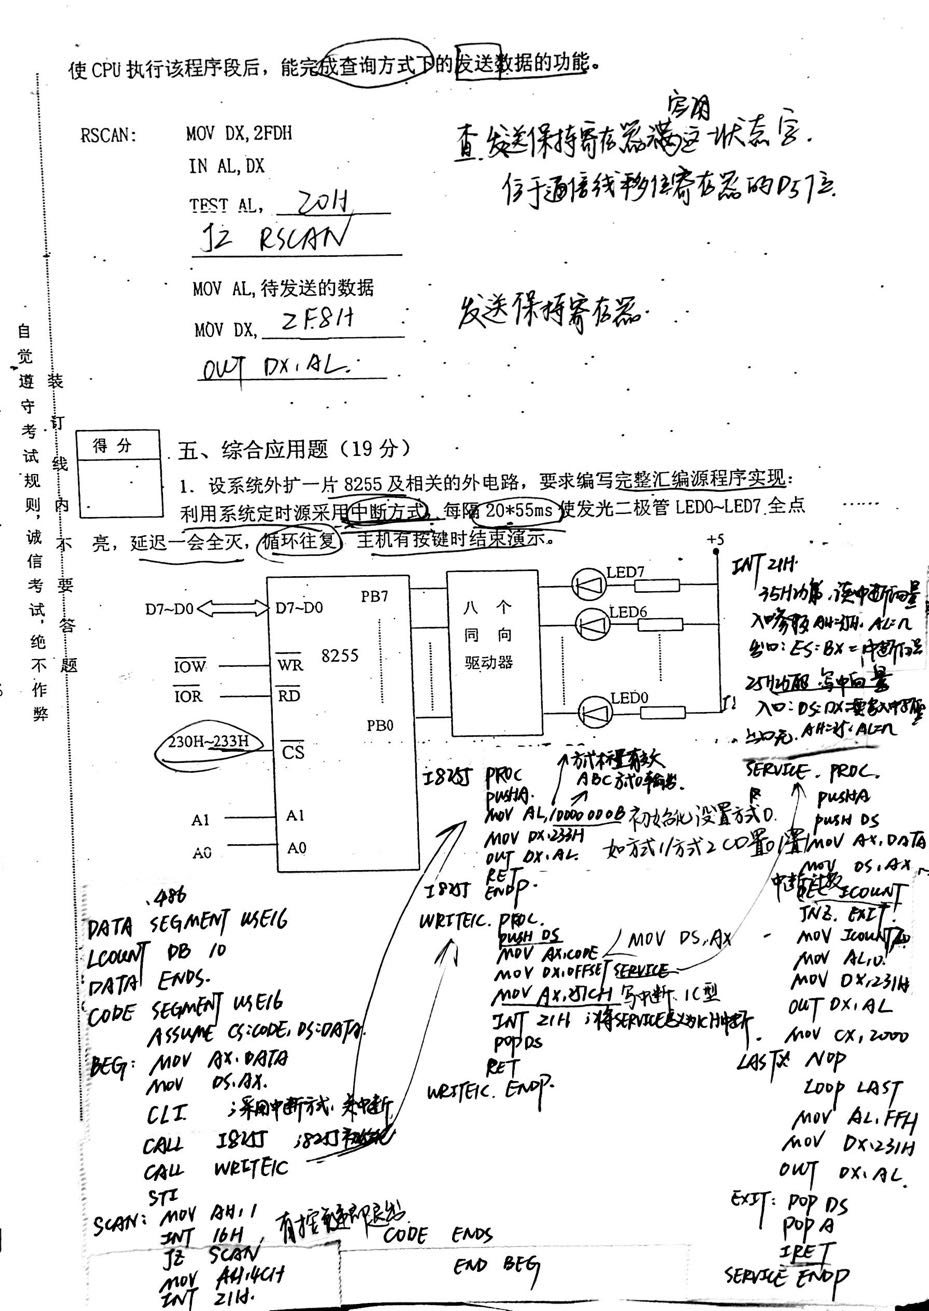 使 CPU 执行该程序段后，能完成查询方式下的发送数据的功能。
RSCAN: MOV DX,2FDH
IN AL,DX
TEST AL, 20H
JZ RSCAN
MOV AL,待发送的数据
MOV DX, 2F8H
OUT DX,AL.
空闲
查发送保持寄存器满这一状态字.
位于通信线移位寄存器的D5位.
发送保持寄存器.
自觉遵守考试规则，诚信考试，绝不作弊
装订线内不要答题
得分
五、综合应用题（19 分）
1. 设系统外扩一片 8255 及相关的外电路，要求编写完整汇编源程序实现：
利用系统定时源采用中断方式，每隔 20*55ms 使发光二极管 LED0~LED7 全点
亮，延迟一会全灭，循环往复 主机有按键时结束演示。
+5
D7~D0
D7~D0
IOW
WR
IOR
RD
230H~233H
CS
A1
A1
A0
A0
8255
PB7
PB0
八个
同向
驱动器
LED7
LED6
LED0
INT 21H.
35H功能,读中断向量
出口: ES:BX=中断向量
25H功能 写中向量
.486
DATA SEGMENT USE16
LCOUNT DB 10
DATA ENDS.
CODE SEGMENT USE16
ASSUME CS:CODE, DS:DATA.
BEG: MOV AX.DATA
MOV DS.AX.
CLI ;采用中断方式.关中断
CALL I8255 ;8255初始化
CALL WRITE1C
STI
SCAN: MOV AH,1
INT 16H
JZ SCAN
MOV AH,4CH
INT 21H.
CODE ENDS
END BEG
ABC方式0输出
I8255 PROC
PUSHA.
MOV AL,10000000B 初始化设置方式0.
MOV DX.233H
OUT DX,AL.
RET
I8255 ENDP.
WRITE1C. PROC.
PUSH DS
MOV AX,CODE
MOV DS,AX
MOV DX,OFFSET SERVICE
MOV AX,251CH 写中断.1C型
INT 21H ;将SERVICE定义为1CH中断
POP DS
RET
WRITE1C. ENDP.
SERVICE. PROC.
PUSHA
PUSH DS
MOV AX,DATA
MOV DS,AX
DEC ICOUNT
JNZ. EXIT
MOV AL,0.
MOV DX,231H
OUT DX,AL
MOV CX,2000
NOP
LOOP LAST
MOV AL,FFH
MOV DX,231H
OUT DX,AL.
EXIT: POP DS
POPA
IRET
SERVICE ENDP